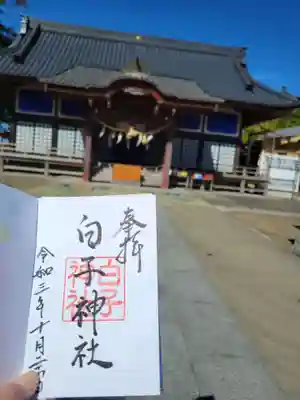 奉拝
白子神社
白子神社
令和三年十月二